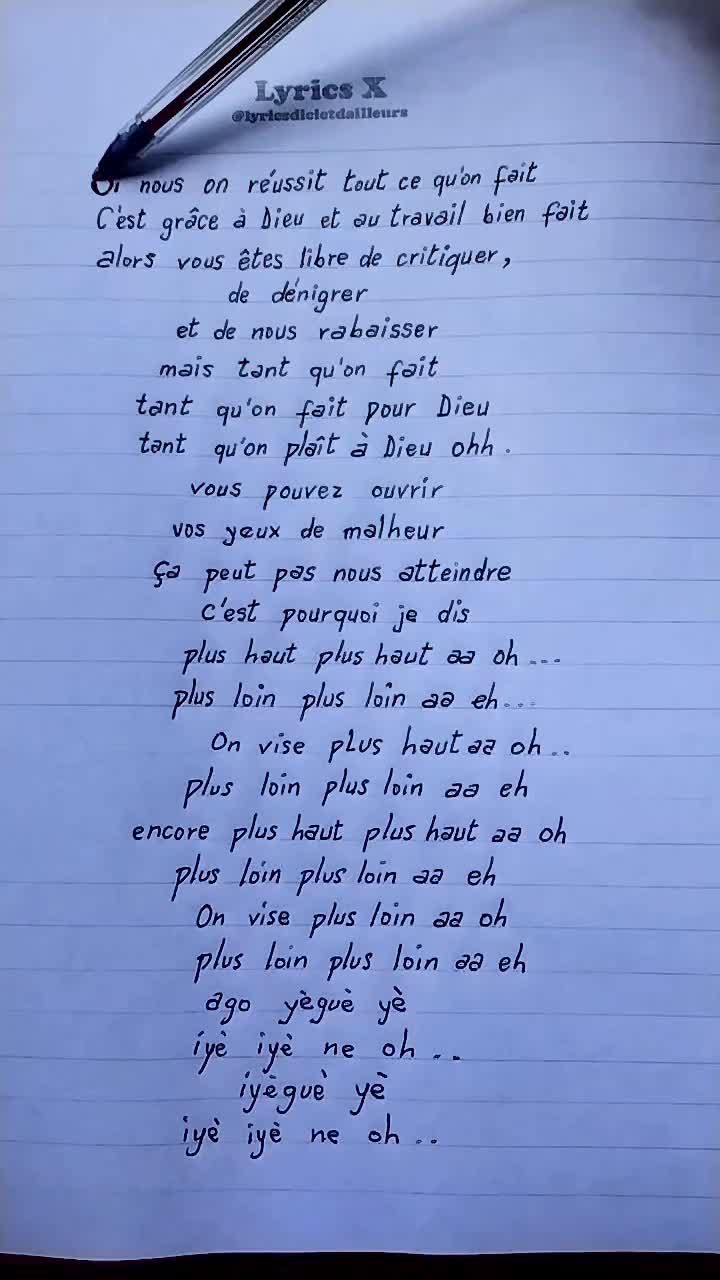 Lyrics X
@lyricsdicietdailleurs
nous on réussit tout ce qu'on fait
C'est grâce à Dieu et au travail bien fait
alors vous êtes libre de critiquer,
de dénigrer
et de nous rabaisser
mais tant qu'on fait
tant qu'on fait pour Dieu
tant qu'on plaît à Dieu ohh.
vous pouvez ouvrir
vos yeux de malheur
ça peut pas nous atteindre
c'est pourquoi je dis
plus haut plus haut aa oh...
plus loin plus loin aa eh...
On vise plus haut aa oh..
plus loin plus loin aa eh
encore plus haut plus haut aa oh
plus loin plus loin aa eh
On vise plus loin aa oh
plus loin plus loin aa eh
ago yèguè yè
iyè iyè ne oh..
iyèguè yè
iyè iyè ne oh..